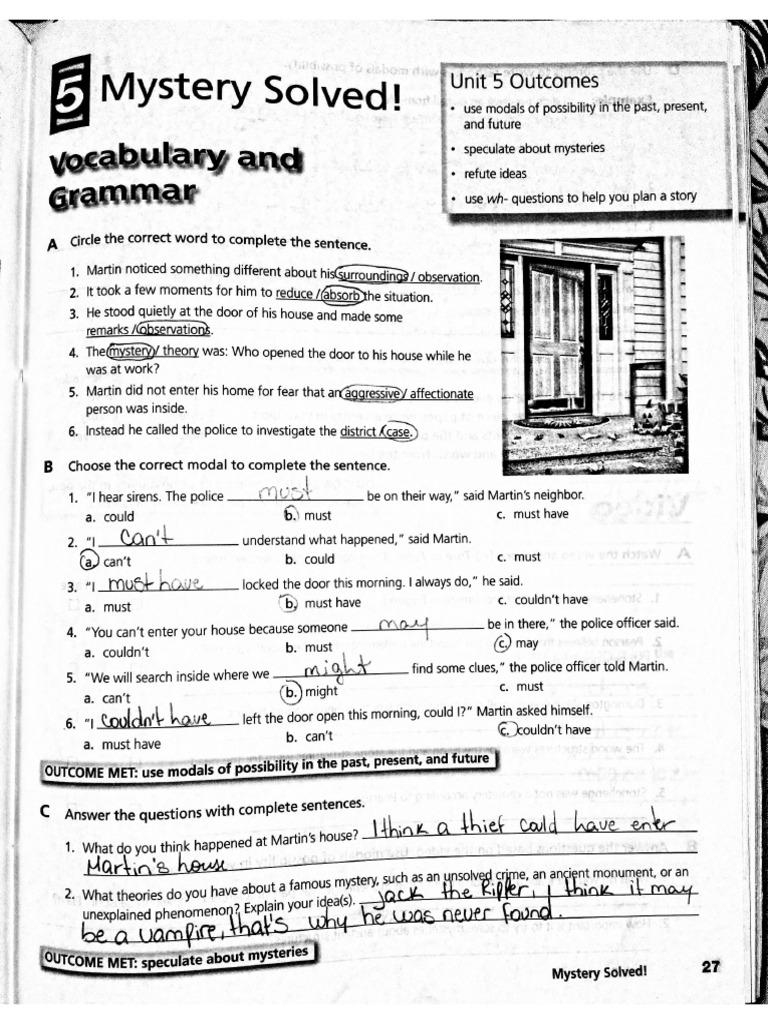 5 Mystery Solved!
Unit 5 Outcomes
• use modals of possibility in the past, present,
and future
• speculate about mysteries
• refute ideas
• use wh- questions to help you plan a story
Vocabulary and
Grammar
A Circle the correct word to complete the sentence.
1. Martin noticed something different about his surroundings / observation.
2. It took a few moments for him to reduce / absorb the situation.
3. He stood quietly at the door of his house and made some
remarks / observations.
4. The mystery / theory was: Who opened the door to his house while he
was at work?
5. Martin did not enter his home for fear that an aggressive / affectionate
person was inside.
6. Instead he called the police to investigate the district / case.
B Choose the correct modal to complete the sentence.
1. "I hear sirens. The police must be on their way," said Martin's neighbor.
a. could b. must c. must have
2. "I can't understand what happened," said Martin.
a. can't b. could c. must
3. "I must have locked the door this morning. I always do," he said.
a. must b. must have c. couldn't have
4. "You can't enter your house because someone may be in there," the police officer said.
a. couldn't b. must c. may
5. "We will search inside where we might find some clues," the police officer told Martin.
a. can't b. might c. must
6. "I couldn't have left the door open this morning, could I?" Martin asked himself.
a. must have b. can't c. couldn't have
OUTCOME MET: use modals of possibility in the past, present, and future
C Answer the questions with complete sentences.
1. What do you think happened at Martin's house? I think a thief could have enter
Martin's house
2. What theories do you have about a famous mystery, such as an unsolved crime, an ancient monument, or an
unexplained phenomenon? Explain your idea(s). jack the Ripper, I think it may
be a vampire, that's why he was never found.
OUTCOME MET: speculate about mysteries
Mystery Solved! 27